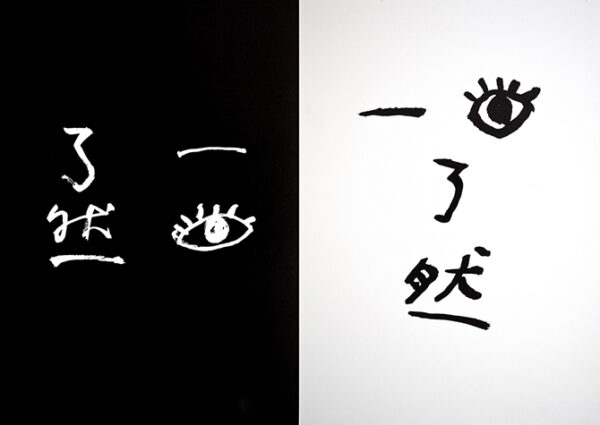 一
了然
一
了
然